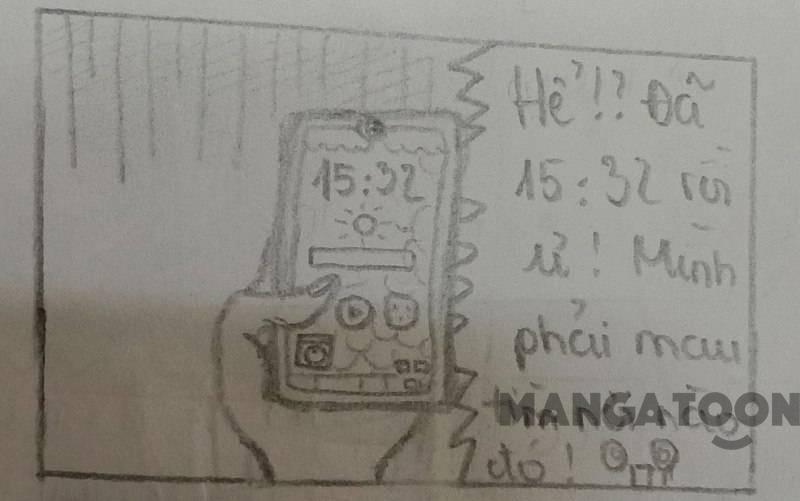 15:32
Hể!? Đã
15:32 rồi
ư! Mình
phải mau
nào
đó!
MANGATOON